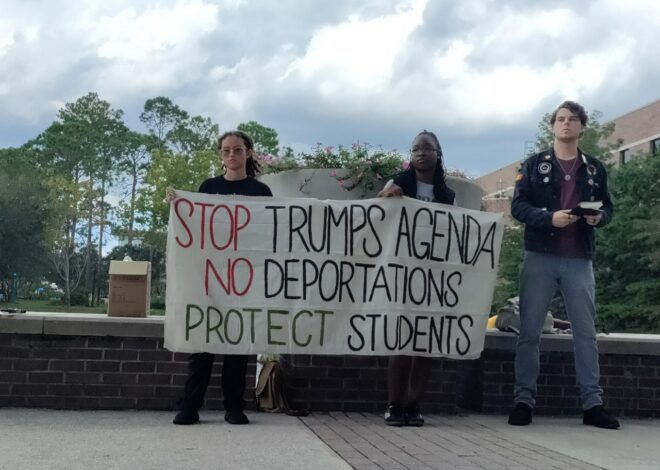 STOP TRUMPS AGENDA
NO DEPORTATIONS
PROTECT STUDENTS